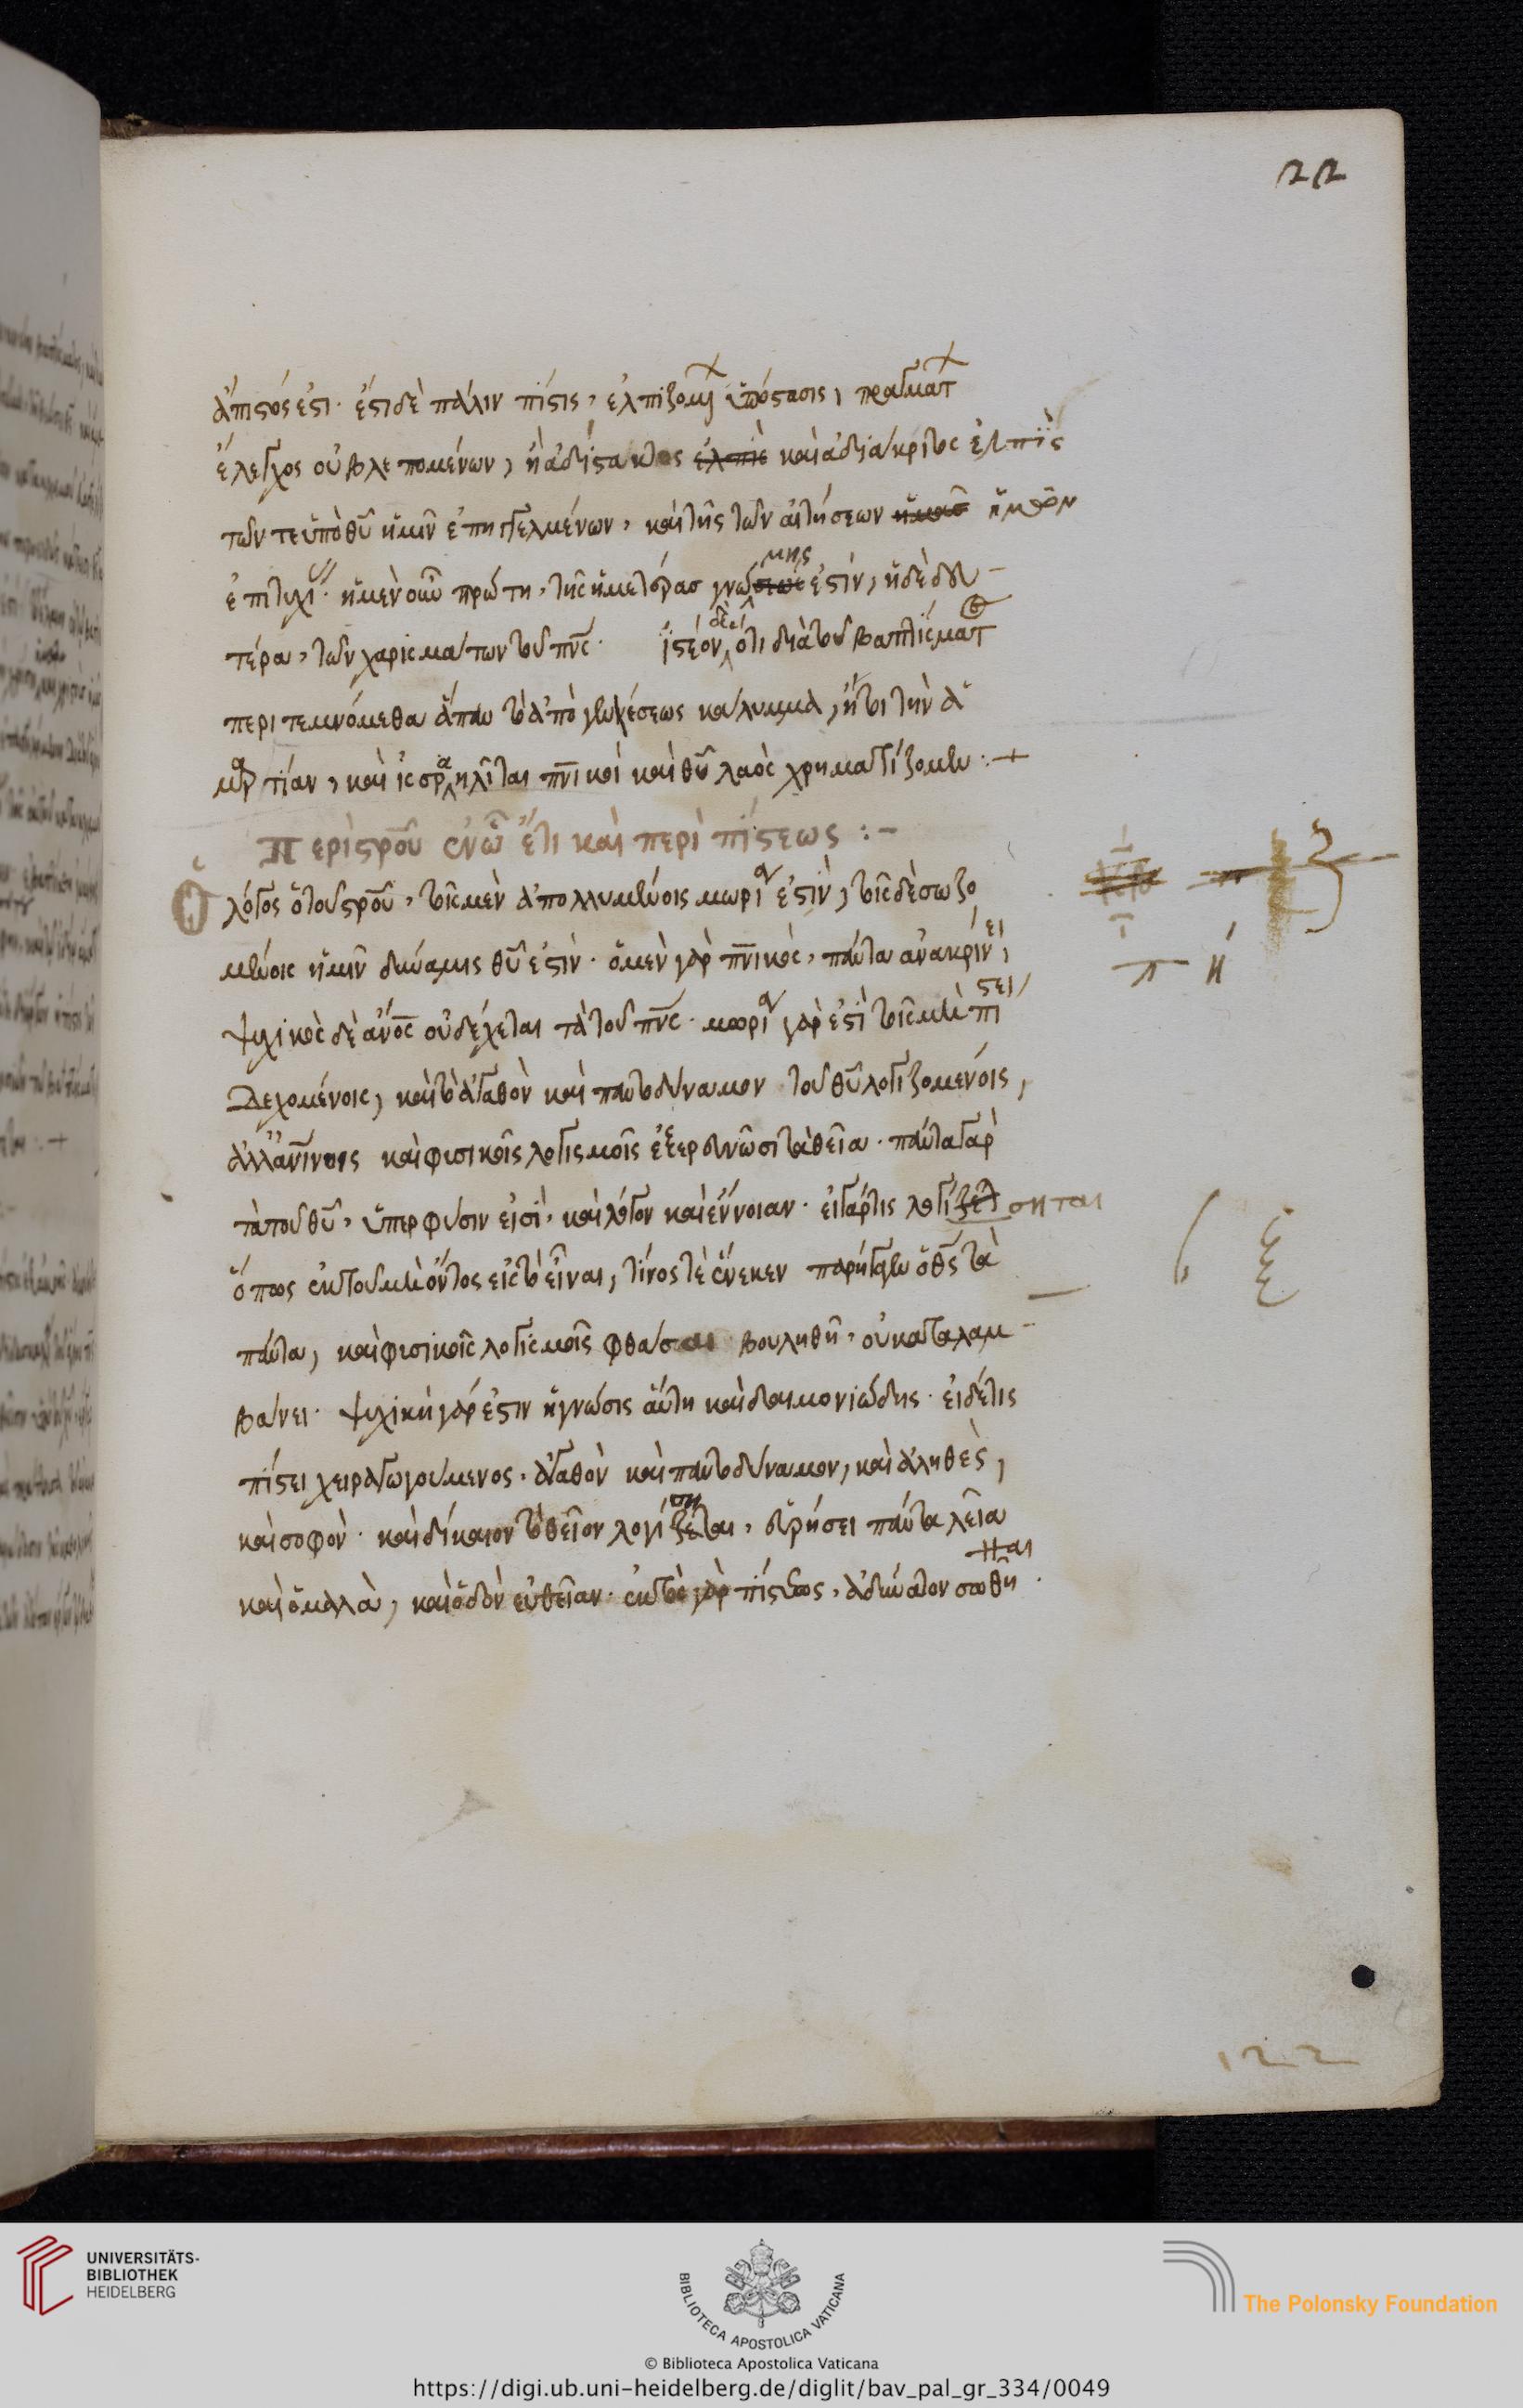 22
ἄπιστός ἐστι· ἔστι δὲ πάλιν πίστις, ἐλπιζομ ὑπόστασις, πραγματ
ἔλεγχος οὐ βλεπομένων, ἢ ἀδίστακτος ἐλπὶς καὶ ἀδιάκριτος ἐλπὶς
τῶν τε ὑπὸ θῦ ἡμῖν ἐπηγγελμένων, καὶ τῆς τῶν αἰτήσεων ἡμῶν
ἐπιτυχί· ἡ μὲν οὖν πρώτη, τῆς ἡμετέρας γνώμης ἐστίν, ἡ δὲ δευ-
τέρα, τῶν χαρισμάτων τοῦ πνς· ἰστέον δὲ ὅτι διὰ τοῦ βαπτίσματ
περιτεμνόμεθα ἅπαν τὸ ἀπὸ γενέσεως κάλυμμα, ἤτοι τὴν ἁ
μαρτίαν, καὶ ἰσραηλῖται πνικοὶ καὶ θῦ λαὸς χρηματίζομεν :-+
Περὶ στροῦ ἐν ὧ ἔτι καὶ περὶ πίστεως :-
Ὁ λόγος ὁ τοῦ στροῦ, τοῖς μὲν ἀπολλυμένοις μωρία ἐστὶν, τοῖς δὲ σωζο
μένοις ἡμῖν δύναμις θῦ ἐστίν· ὁ μὲν γὰρ πνικὸς, πάντα ἀνακρίνει,
ψυχικὸς δὲ ἄνος οὐ δέχεται τὰ τοῦ πνς· μωρία γάρ ἐστι τοῖς μὴ πίστει
δεχομένοις, καὶ τὸ ἀγαθὸν καὶ παντοδύναμον τοῦ θῦ λογιζομένοις,
ἀλλ' ἀνίνοις καὶ φυσικοῖς λογισμοῖς ἐξερευνῶσι τὰ θεῖα· πάντα γὰρ
τὰ τοῦ θῦ, ὑπὲρ φύσιν εἰσὶ, καὶ λόγον καὶ ἔννοιαν· εἰ γάρ τις λογίσηται
ὅπως ἐκ τοῦ μὴ ὄντος εἰς τὸ εἶναι, τίνος τὲ ἕνεκεν παρήγαγεν ὁ θς τὰ
πάντα, καὶ φυσικοῖς λογισμοῖς φθάσαι βουληθῆ, οὐ καταλαμ-
βάνει· ψυχικὴ γάρ ἐστιν ἡ γνώσις αὕτη καὶ δαιμονιώδης· εἰ δέ τις
πίστει χειραγωγούμενος, ἀγαθὸν καὶ παντοδύναμον, καὶ ἀληθὲς,
καὶ σοφὸν· καὶ δίκαιον τὸ θεῖον λογίσηται, εὑρήσει πάντα λεῖα
καὶ ὁμαλὰ, καὶ ὁδὸν εὐθεῖαν· ἐκτὸς γὰρ πίστεως, ἀδύνατον σωθῆναι·
π ή
ξ
122
UNIVERSITÄTS-
BIBLIOTHEK
HEIDELBERG
BIBLIOTECA APOSTOLICA VATICANA
The Polonsky Foundation
© Biblioteca Apostolica Vaticana
https://digi.ub.uni-heidelberg.de/diglit/bav_pal_gr_334/0049